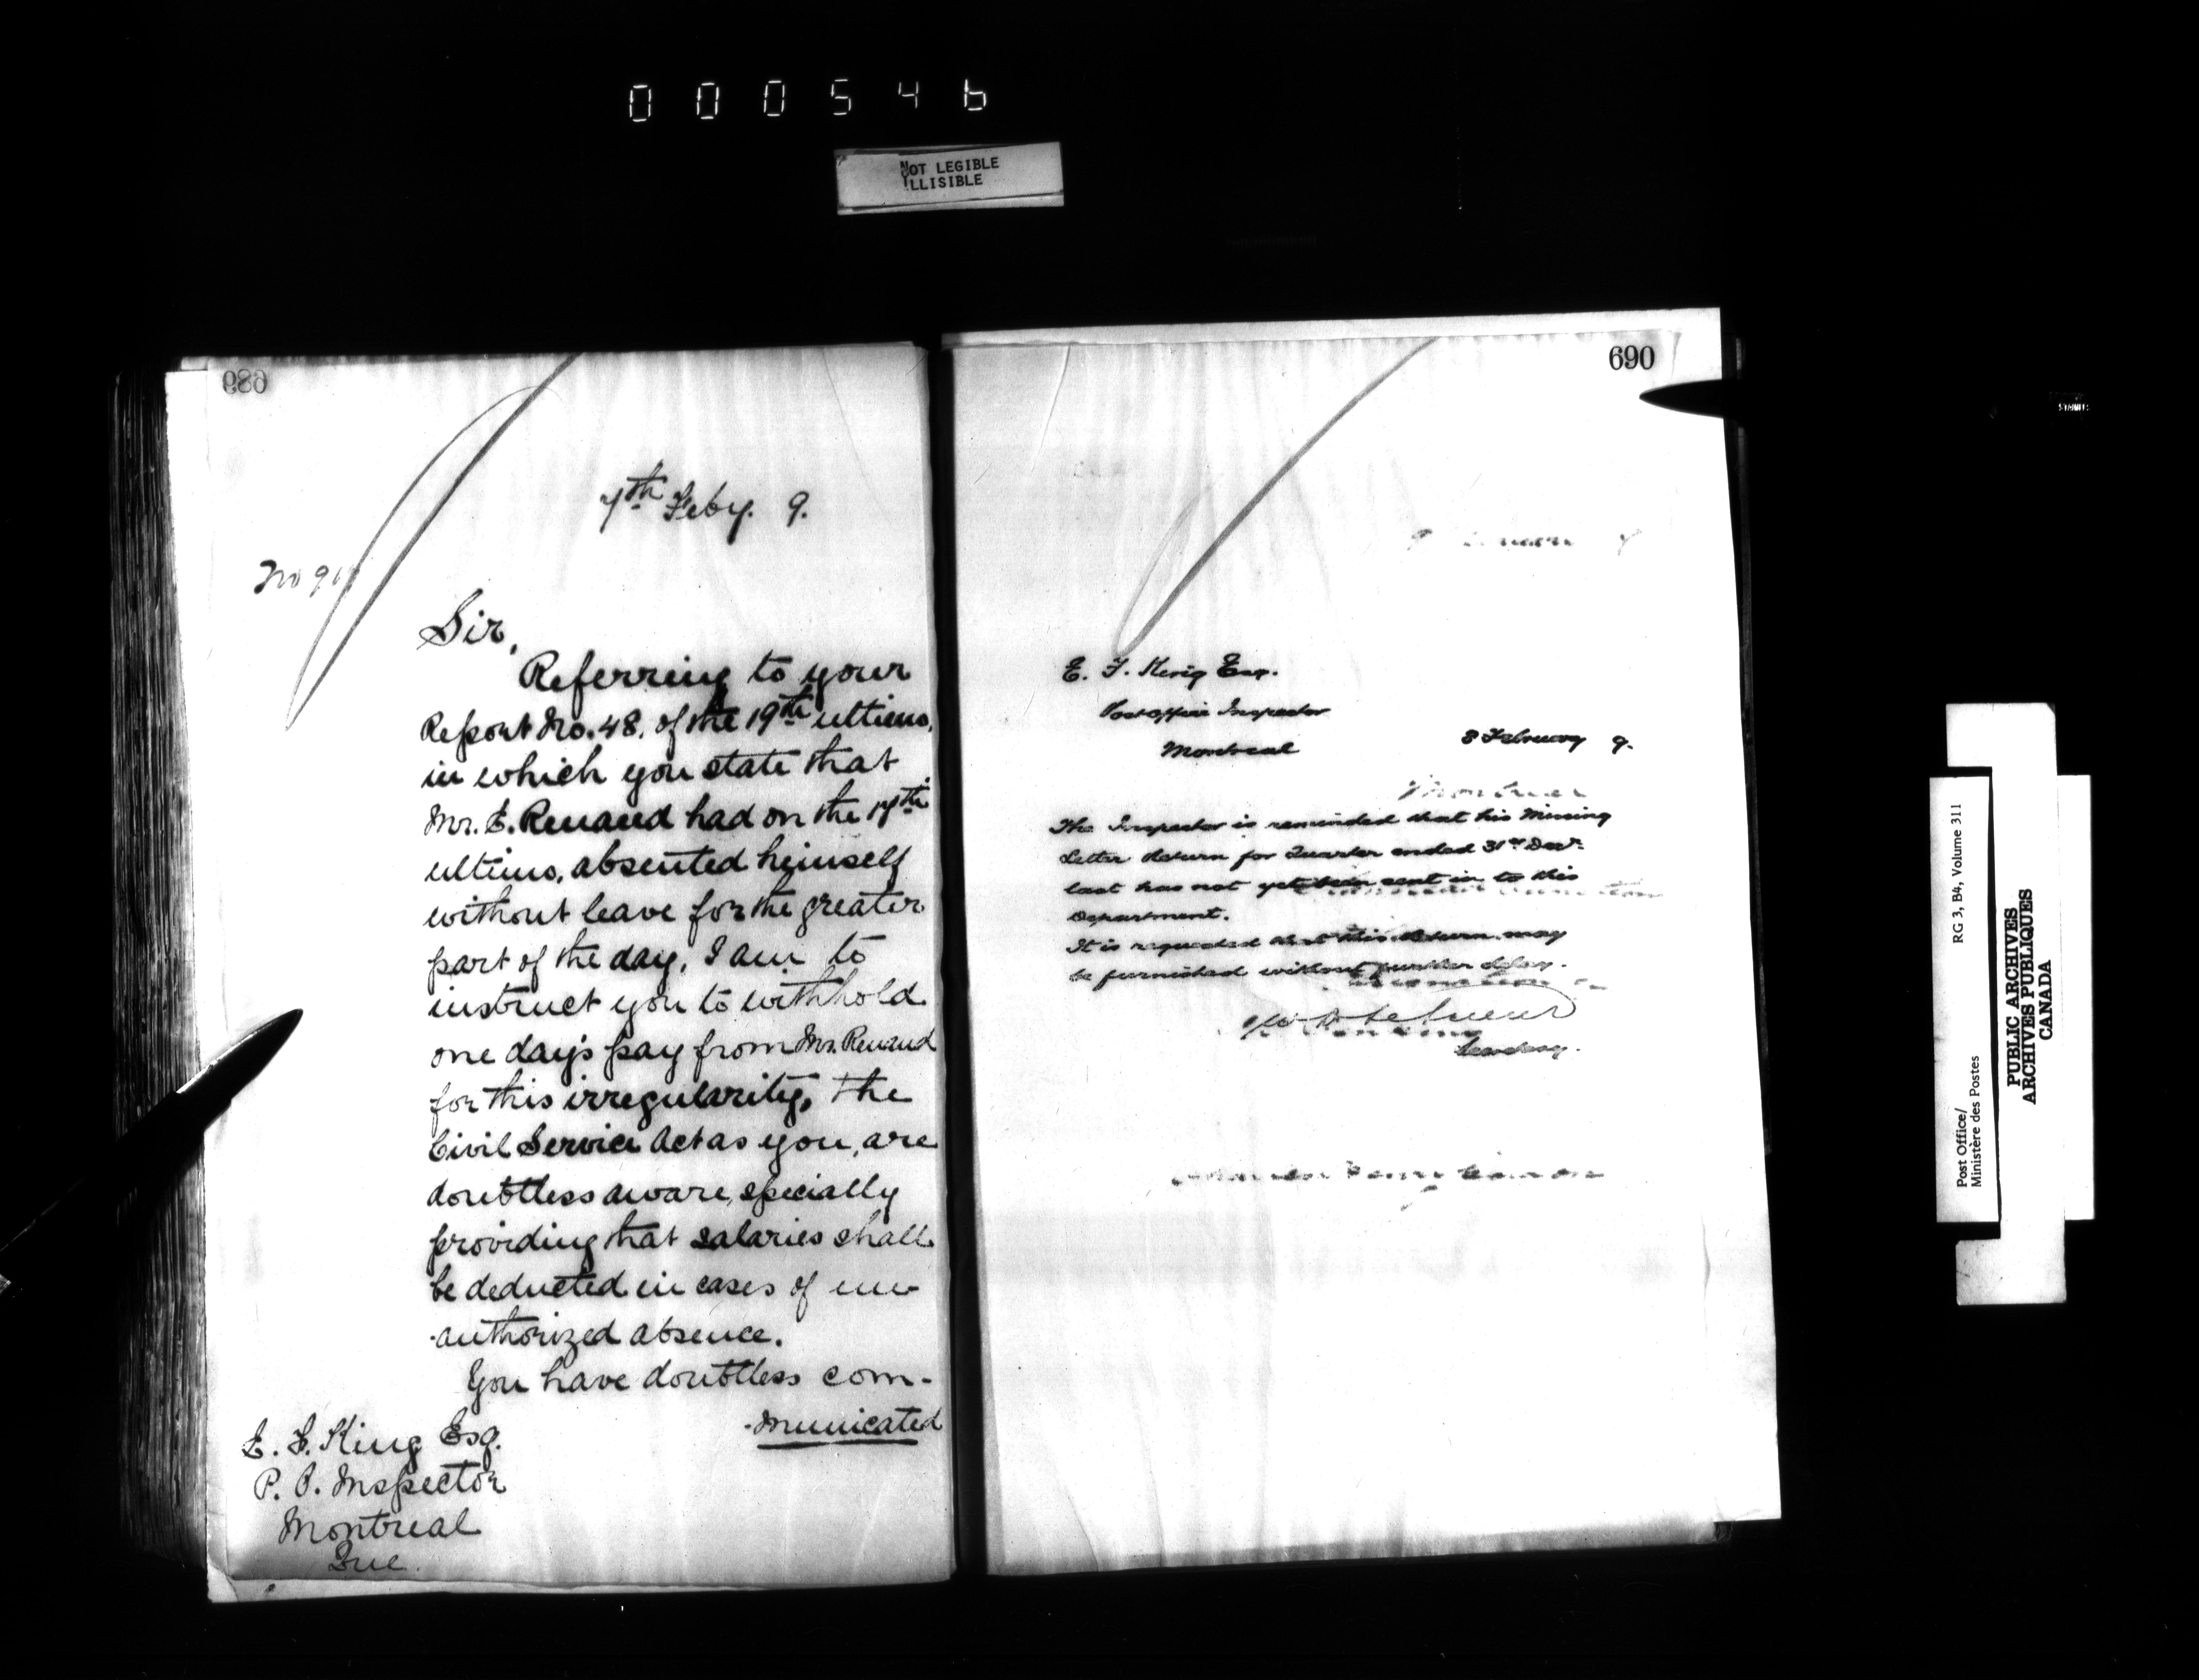 000546
NOT LEGIBLE
ILLISIBLE
689
7th Feby. 9.
No 9
Sir,
Referring to your
Report No. 48, of the 19th ultimo,
in which you state that
Mr. E. Renaud had on the 17th
ultimo, absented himself
without leave for the greater
part of the day, I am to
instruct you to withhold
one day's pay from Mr. Renaud
for this irregularity, the
Civil Service Act as you, are
doubtless aware, specially
providing that salaries shall
be deducted in cases of un-
-authorized absence.
You have doubtless com-
-municated
E. F. King Esq.
P. O. Inspector
Montreal
Que.
690
E. F. King Esq.
Post Office Inspector
Montreal
8 February 9.
The Inspector is reminded that his Missing
Letter Return for Quarter ended 31st Decr.
last has not yet been sent in to this
Department.
It is requested that this Return may
be furnished without further delay.
Secretary.
Post Office/
Ministère des Postes
RG 3, B4, Volume 311
PUBLIC ARCHIVES
ARCHIVES PUBLIQUES
CANADA